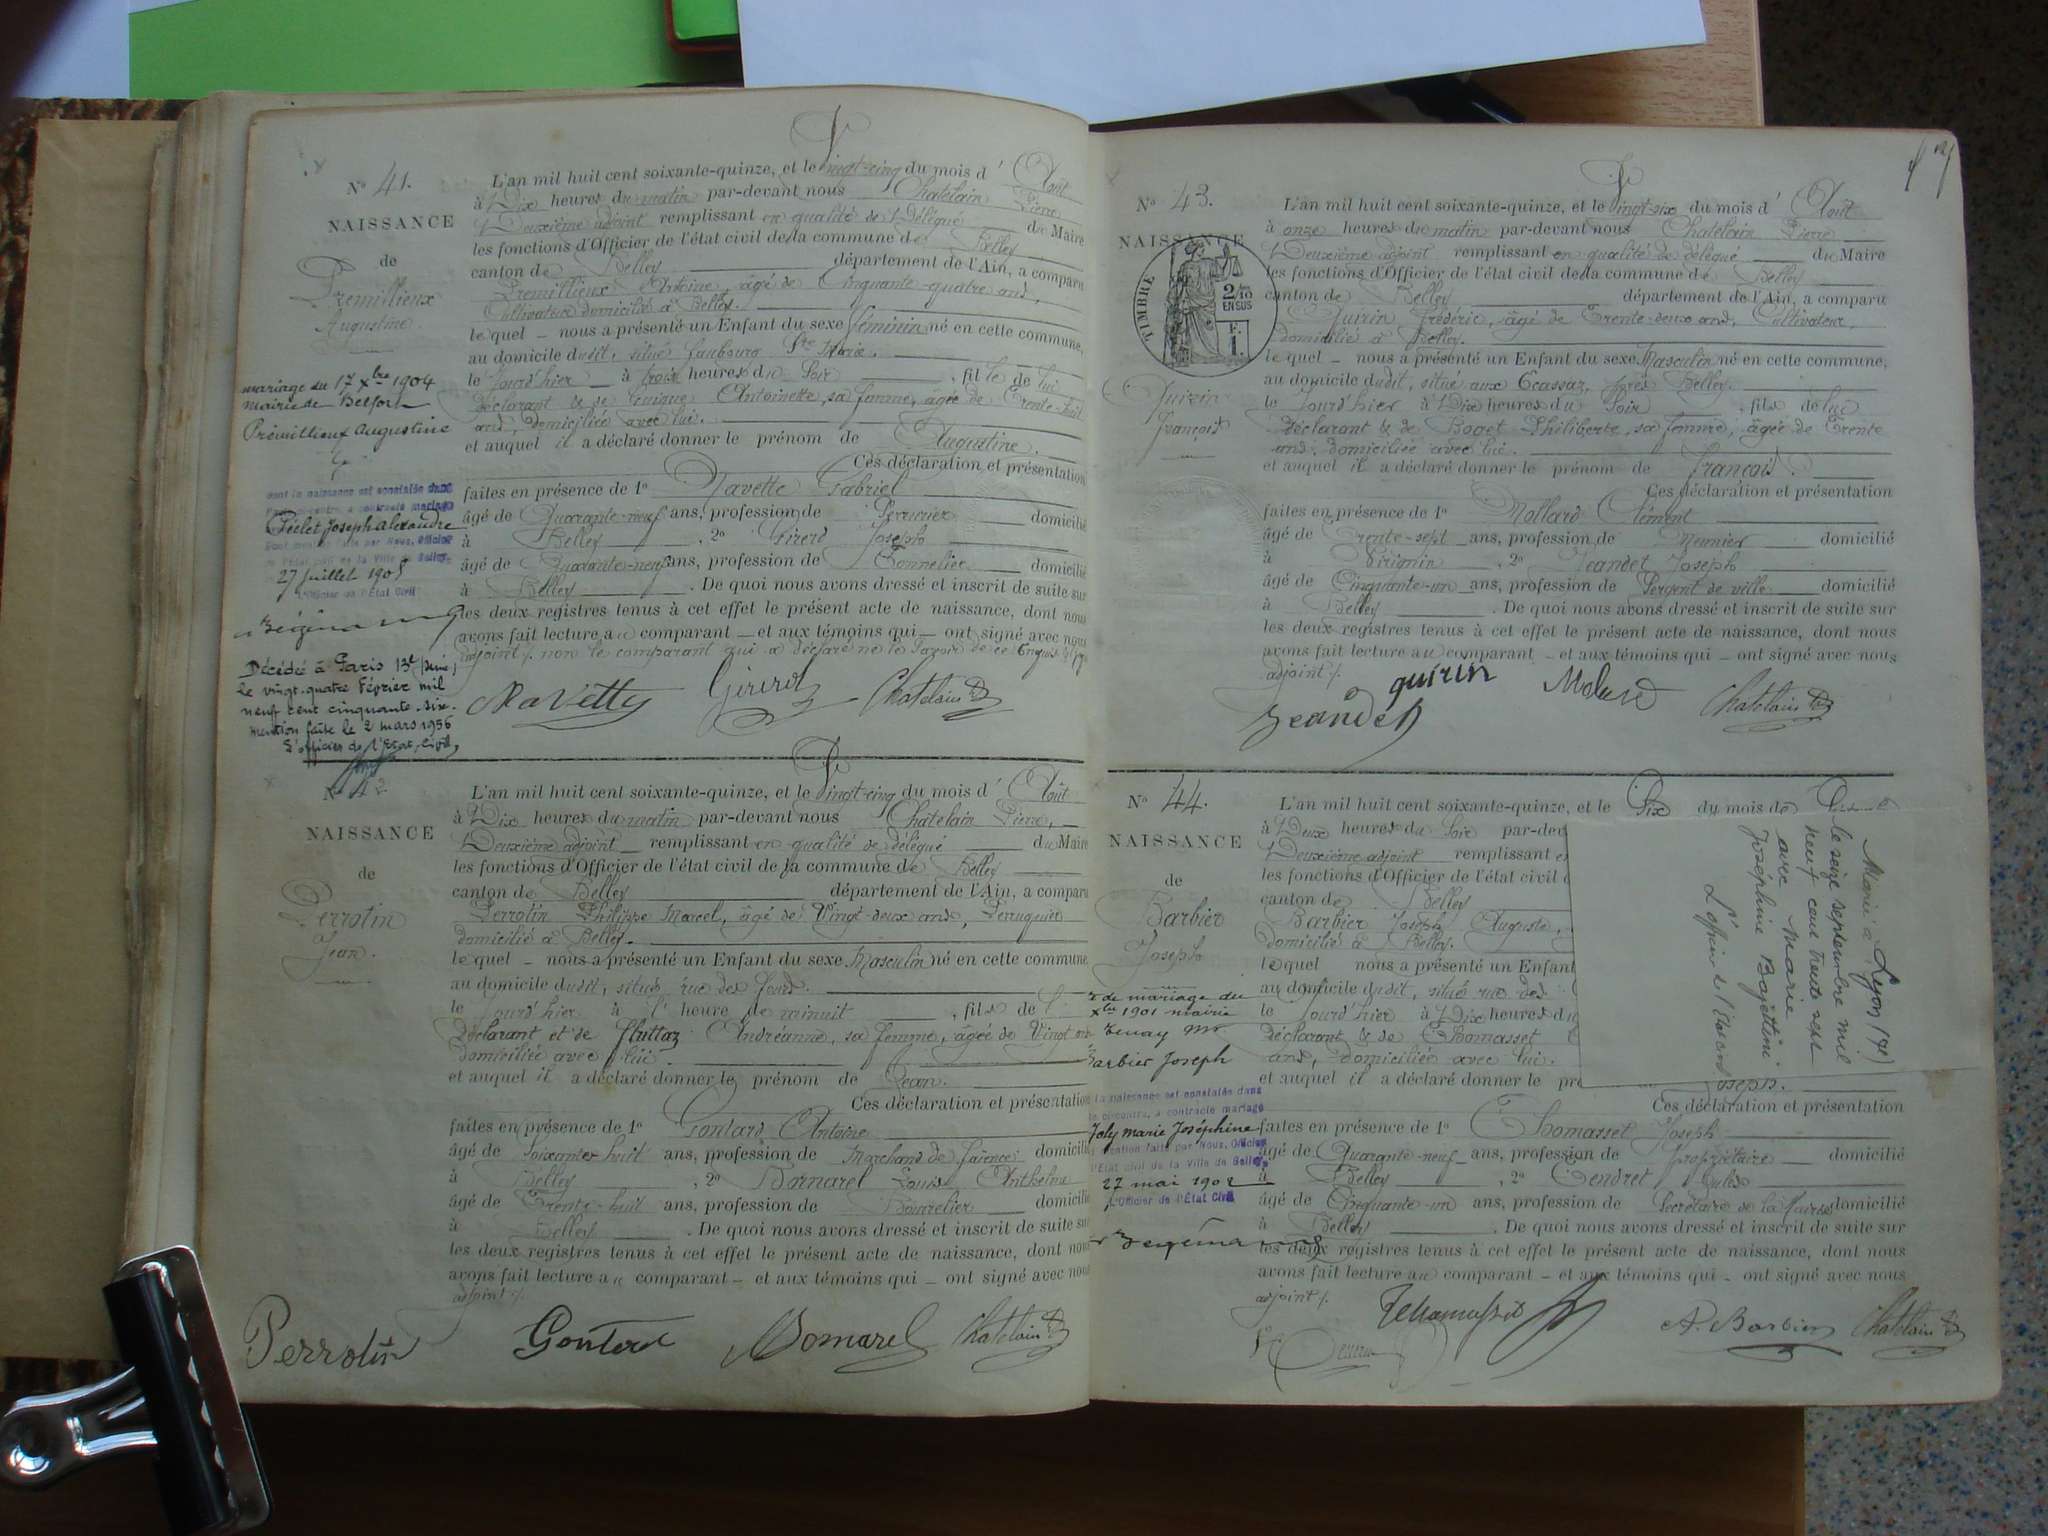 No 41.
NAISSANCE
de
Premillieux
Augustine.
mariage du 17 Xbre 1904
mairie de Belfort
Prémillieux Augustine
dont la naissance est constatée dans
l'acte ci-contre, a contracté mariage
Pielet Joseph Alexandre
27 juillet 1905
L'Officier de l'État Civil
Décédée à Paris 13e (Seine)
le vingt-quatre Février mil
neuf cent cinquante-six.
mention faite le 2 mars 1956
L'officier de l'Etat Civil,
L'an mil huit cent soixante-quinze, et le Vingt-cinq du mois d'Août
à Dix heures du matin par-devant nous Chatelain Pierre
Deuxième adjoint remplissant en qualité de Délégué du Maire
les fonctions d'Officier de l'état civil de la commune de Belley
canton de Belley département de l'Ain, a comparu
Premillieux Antoine, âgé de Cinquante-quatre ans,
Cultivateur domicilié à Belley.
le quel nous a présenté un Enfant du sexe féminin né en cette commune,
au domicile dudit, situé faubourg Ste Marie.
le Jourd'hier à trois heures du Soir, fille de lui
déclarant & de Antoinette, sa femme, âgée de Trente-huit
ans, domiciliée avec lui.
et auquel il a déclaré donner le prénom de Augustine.
Ces déclaration et présentation
faites en présence de 1o Navette Gabriel
âgé de Quarante-neuf ans, profession de Serrurier domicilié
à Belley, 2o Girerd Joseph
âgé de Quarante-neuf ans, profession de Tonnelier domicilié
à Belley. De quoi nous avons dressé et inscrit de suite sur
les deux registres tenus à cet effet le présent acte de naissance, dont nous
avons fait lecture au comparant et aux témoins qui ont signé avec nous
adjoint %. non le comparant qui a déclaré ne le savoir de ce
Navette Girerd Chatelain
No 42
NAISSANCE
de
Perrotin
Jean.
L'an mil huit cent soixante-quinze, et le Vingt-cinq du mois d'Août
à Dix heures du matin par-devant nous Chatelain Pierre,
Deuxième adjoint remplissant en qualité de délégué du Maire
les fonctions d'Officier de l'état civil de la commune de Belley
canton de Belley département de l'Ain, a comparu
Perrotin Philippe Marcel, âgé de Vingt-deux ans, Perruquier
domicilié à Belley.
le quel nous a présenté un Enfant du sexe Masculin né en cette commune
au domicile dudit, situé rue des fours.
le jourd'hier à l'heure de minuit, fils de
déclarant et de Fluttaz Andréanne, sa femme, âgée de Vingt
domiciliée avec lui.
et auquel il a déclaré donner le prénom de Jean.
Ces déclaration et présentation
faites en présence de 1o Gontard Antoine
âgé de Soixante-huit ans, profession de Marchand de faïence domicilié
à Belley, 2o Bornarel Louis Anthelme
âgé de Trente-huit ans, profession de Bourrelier domicilié
à Belley. De quoi nous avons dressé et inscrit de suite sur
les deux registres tenus à cet effet le présent acte de naissance, dont nous
avons fait lecture au comparant et aux témoins qui ont signé avec nous
adjoint %.
Perrotin Gontard Bornarel Chatelain
No 43.
NAISSANCE
TIMBRE
2/10
EN SUS
F.
1.
Quirin
François
L'an mil huit cent soixante-quinze, et le Vingt-six du mois d'Août
à onze heures du matin par-devant nous Chatelain Pierre
Deuxième adjoint remplissant en qualité de délégué du Maire
les fonctions d'Officier de l'état civil de la commune de Belley
canton de Belley département de l'Ain, a comparu
Quirin Frédéric, âgé de Trente-deux ans, Cultivateur,
domicilié à Belley.
le quel nous a présenté un Enfant du sexe Masculin né en cette commune,
au domicile dudit, situé aux Ecassaz, près Belley.
le Jourd'hier à Dix heures du Soir, fils de lui
déclarant & de Boget Philiberte, sa femme, âgée de Trente
ans, domiciliée avec lui.
et auquel il a déclaré donner le prénom de François.
Ces déclaration et présentation
faites en présence de 1o Mollard Clément
âgé de Trente-sept ans, profession de Meunier domicilié
à Virignin, 2o Jeandet Joseph
âgé de Cinquante-un ans, profession de Sergent de ville
à Belley. De quoi nous avons dressé et inscrit de suite sur
les deux registres tenus à cet effet le présent acte de naissance, dont nous
avons fait lecture au comparant et aux témoins qui ont signé avec nous
adjoint %.
quirin Molard Chatelain
Jeandet
No 44.
NAISSANCE
de
Barbier
Joseph
de mariage du
Xbre 1901 mairie
Tenay
Barbier Joseph
la naissance est constatée dans
ci-contre, a contracté mariage
Joly Marie Joséphine
mention faite par Nous, Officier
l'État civil de la Ville de Belley
27 mai 1902
L'Officier de l'État Civil
L'an mil huit cent soixante-quinze, et le Six du mois de
à Deux heures du Soir par-de
Deuxième adjoint remplissant
les fonctions d'Officier de l'état civil
canton de Belley
Barbier Joseph Auguste,
domicilié à Belley.
le quel nous a présenté un Enfant
au domicile dudit, situé rue des
le Jourd'hier à Dix heures du
déclarant & de Thomasset
ans, domiciliée avec lui.
et auquel il a déclaré donner le pr
Joseph.
Ces déclaration et présentation
faites en présence de 1o Thomasset Joseph
âgé de Quarante-neuf ans, profession de propriétaire domicilié
à Belley, 2o Tendret Jules
âgé de Cinquante-un ans, profession de Secrétaire de la Mairie domicilié
à Belley. De quoi nous avons dressé et inscrit de suite sur
les deux registres tenus à cet effet le présent acte de naissance, dont nous
avons fait lecture au comparant et aux témoins qui ont signé avec nous
adjoint %.
A. Barbier Chatelain
Marié à Lyon (7e)
le seize septembre mil
neuf cent trente sept
avec Marie
Joséphine Bajettini
L'officier de l'Etat civil